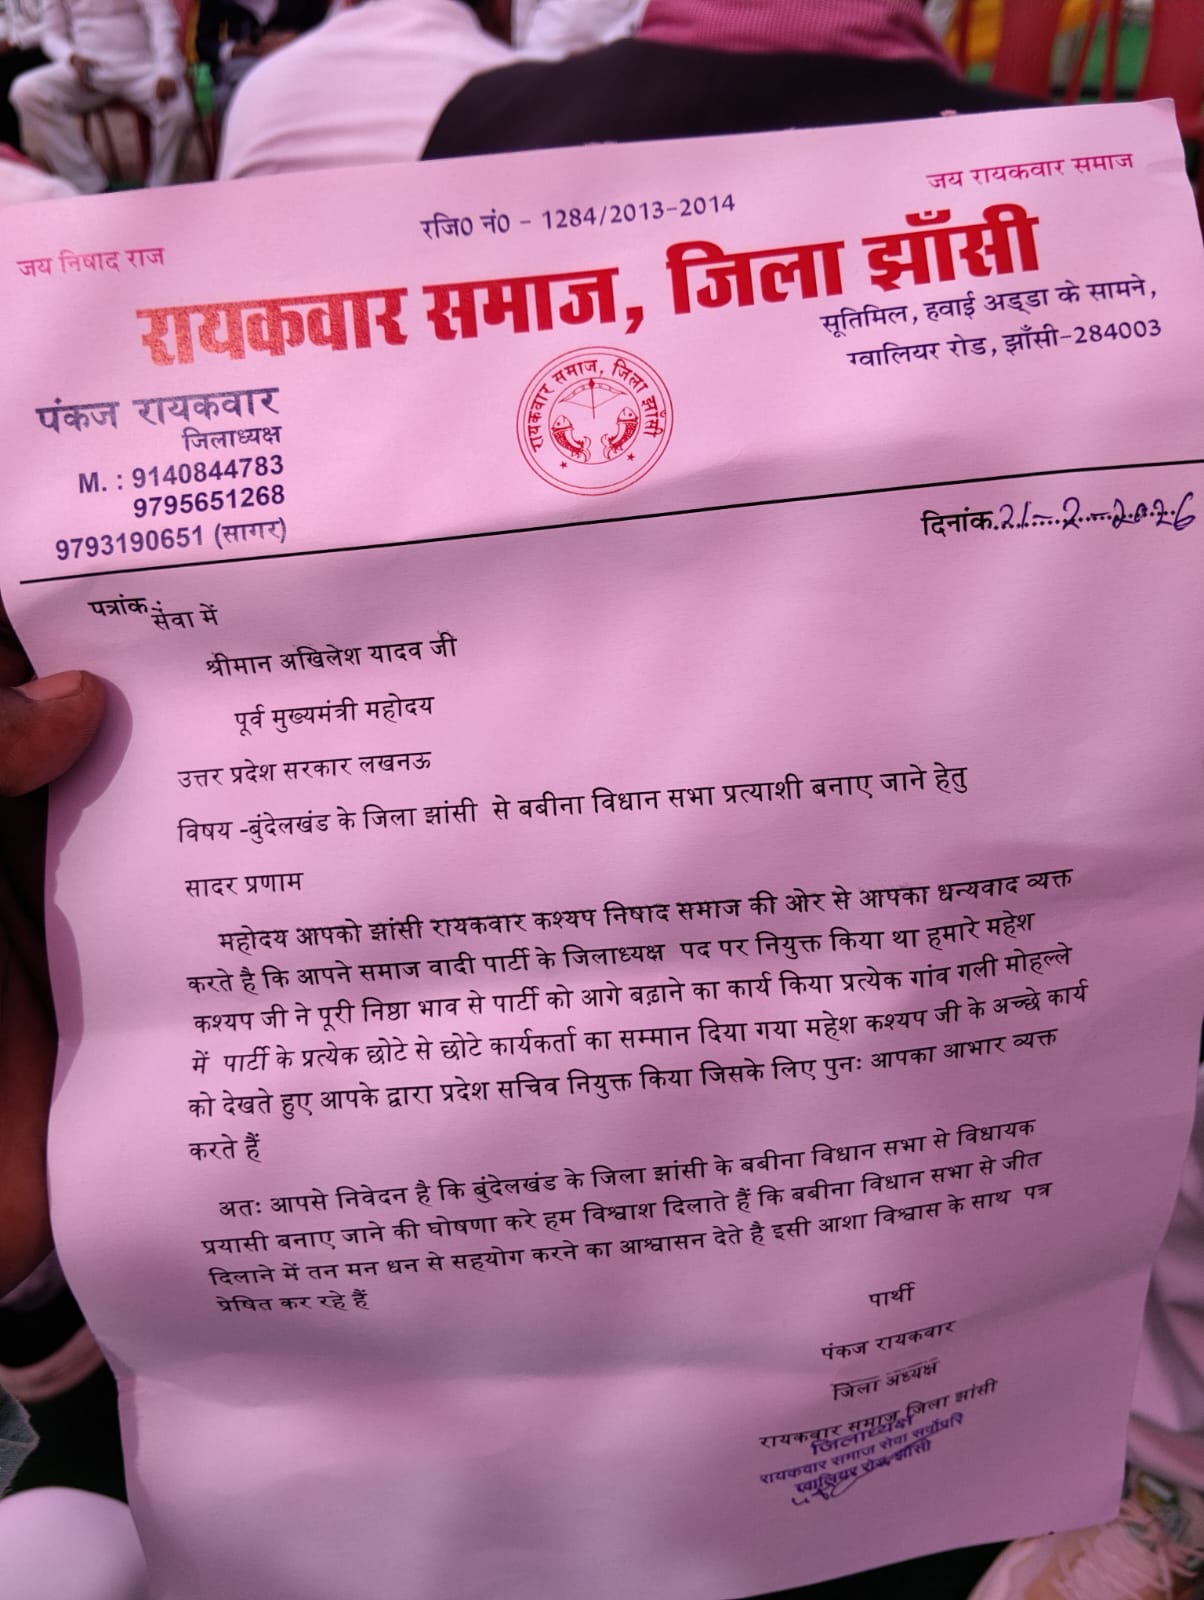 जय निषाद राज
रजि0 नं0 - 1284/2013-2014
जय रायकवार समाज
रायकवार समाज, जिला झाँसी
सूतिमिल, हवाई अड्डा के सामने,
ग्वालियर रोड, झाँसी-284003
पंकज रायकवार
जिलाध्यक्ष
M. : 9140844783
9795651268
9793190651 (सागर)
रायकवार समाज, जिला झाँसी
दिनांक 21-2-2026
पत्रांक:
सेवा में
श्रीमान अखिलेश यादव जी
पूर्व मुख्यमंत्री महोदय
उत्तर प्रदेश सरकार लखनऊ
विषय -बुंदेलखंड के जिला झांसी से बबीना विधान सभा प्रत्याशी बनाए जाने हेतु
सादर प्रणाम
महोदय आपको झांसी रायकवार कश्यप निषाद समाज की ओर से आपका धन्यवाद व्यक्त
करते है कि आपने समाज वादी पार्टी के जिलाध्यक्ष पद पर नियुक्त किया था हमारे महेश
कश्यप जी ने पूरी निष्ठा भाव से पार्टी को आगे बढ़ाने का कार्य किया प्रत्येक गांव गली मोहल्ले
में पार्टी के प्रत्येक छोटे से छोटे कार्यकर्ता का सम्मान दिया गया महेश कश्यप जी के अच्छे कार्य
को देखते हुए आपके द्वारा प्रदेश सचिव नियुक्त किया जिसके लिए पुनः आपका आभार व्यक्त
करते हैं
अतः आपसे निवेदन है कि बुंदेलखंड के जिला झांसी के बबीना विधान सभा से विधायक
प्रयासी बनाए जाने की घोषणा करे हम विश्वाश दिलाते हैं कि बबीना विधान सभा से जीत
दिलाने में तन मन धन से सहयोग करने का आश्वासन देते है इसी आशा विश्वास के साथ पत्र
प्रेषित कर रहे हैं
पार्थी
पंकज रायकवार
जिला अध्यक्ष
रायकवार समाज जिला झांसी
जिलाध्यक्ष
रायकवार समाज सेवा सर्वोप्ररि
ग्वालियर रोड झाँसी